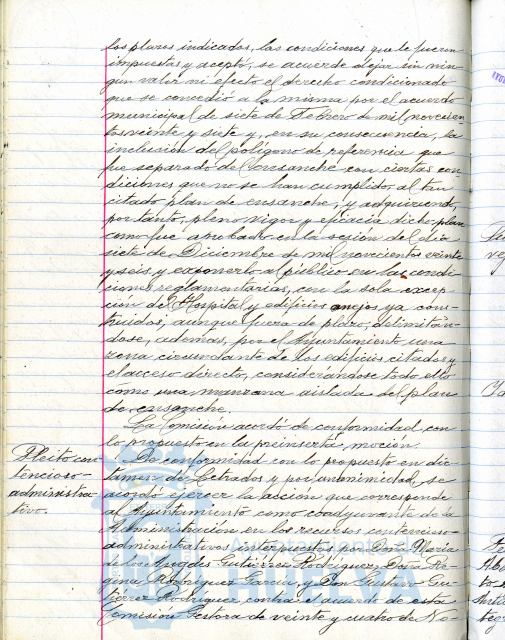 los plazos indicados, las condiciones que le fueron
impuestas y aceptó, se acuerde dejar sin nin-
gun valor ni efecto el derecho condicionado
que se concedió a la misma por el acuerdo
municipal de siete de Febrero de mil novecien-
tos veinte y siete y, en su consecuencia, la
inclusión del polígono de referencia que
fue separado del ensanche con ciertas con-
diciones que no se han cumplido, al tan
citado plan de ensanche, y adquiriendo,
por tanto, pleno vigor y eficacia dicho plan
como fue aprobado en la sesión del dia
siete de Diciembre de mil novecientos veinte
y seis y exponerlo al público en las condi-
ciones reglamentarias, con la sola excep-
ción del Hospital y edificios anejos ya cons-
truidos, aunque fuera de plazo, delimitán-
dose, ademas, por el Ayuntamiento una
zona circundante de los edificios citados y
el acceso directo, considerándose todo ello
como una manzana aislada del plan
de ensanche.
La Comisión acordó de conformidad con
lo propuesto en la preinserta moción.
Pleito con-
tencioso-
administra-
tivo.
De conformidad con lo propuesto en dic-
tamen de Letrados y por unanimidad, se
acordó ejercer la acción que corresponde
al Ayuntamiento como coadyuvante de la
Administración en los recursos contencioso-
administrativos interpuestos por Doña Maria
de los Angeles Gutierrez Rodriguez, Doña Re-
gina Rodriguez Garcia, y Don Gustavo Gu-
tierrez Rodriguez, contra el acuerdo de esta
Comisión Gestora de veinte y cuatro de No-
HUELVA